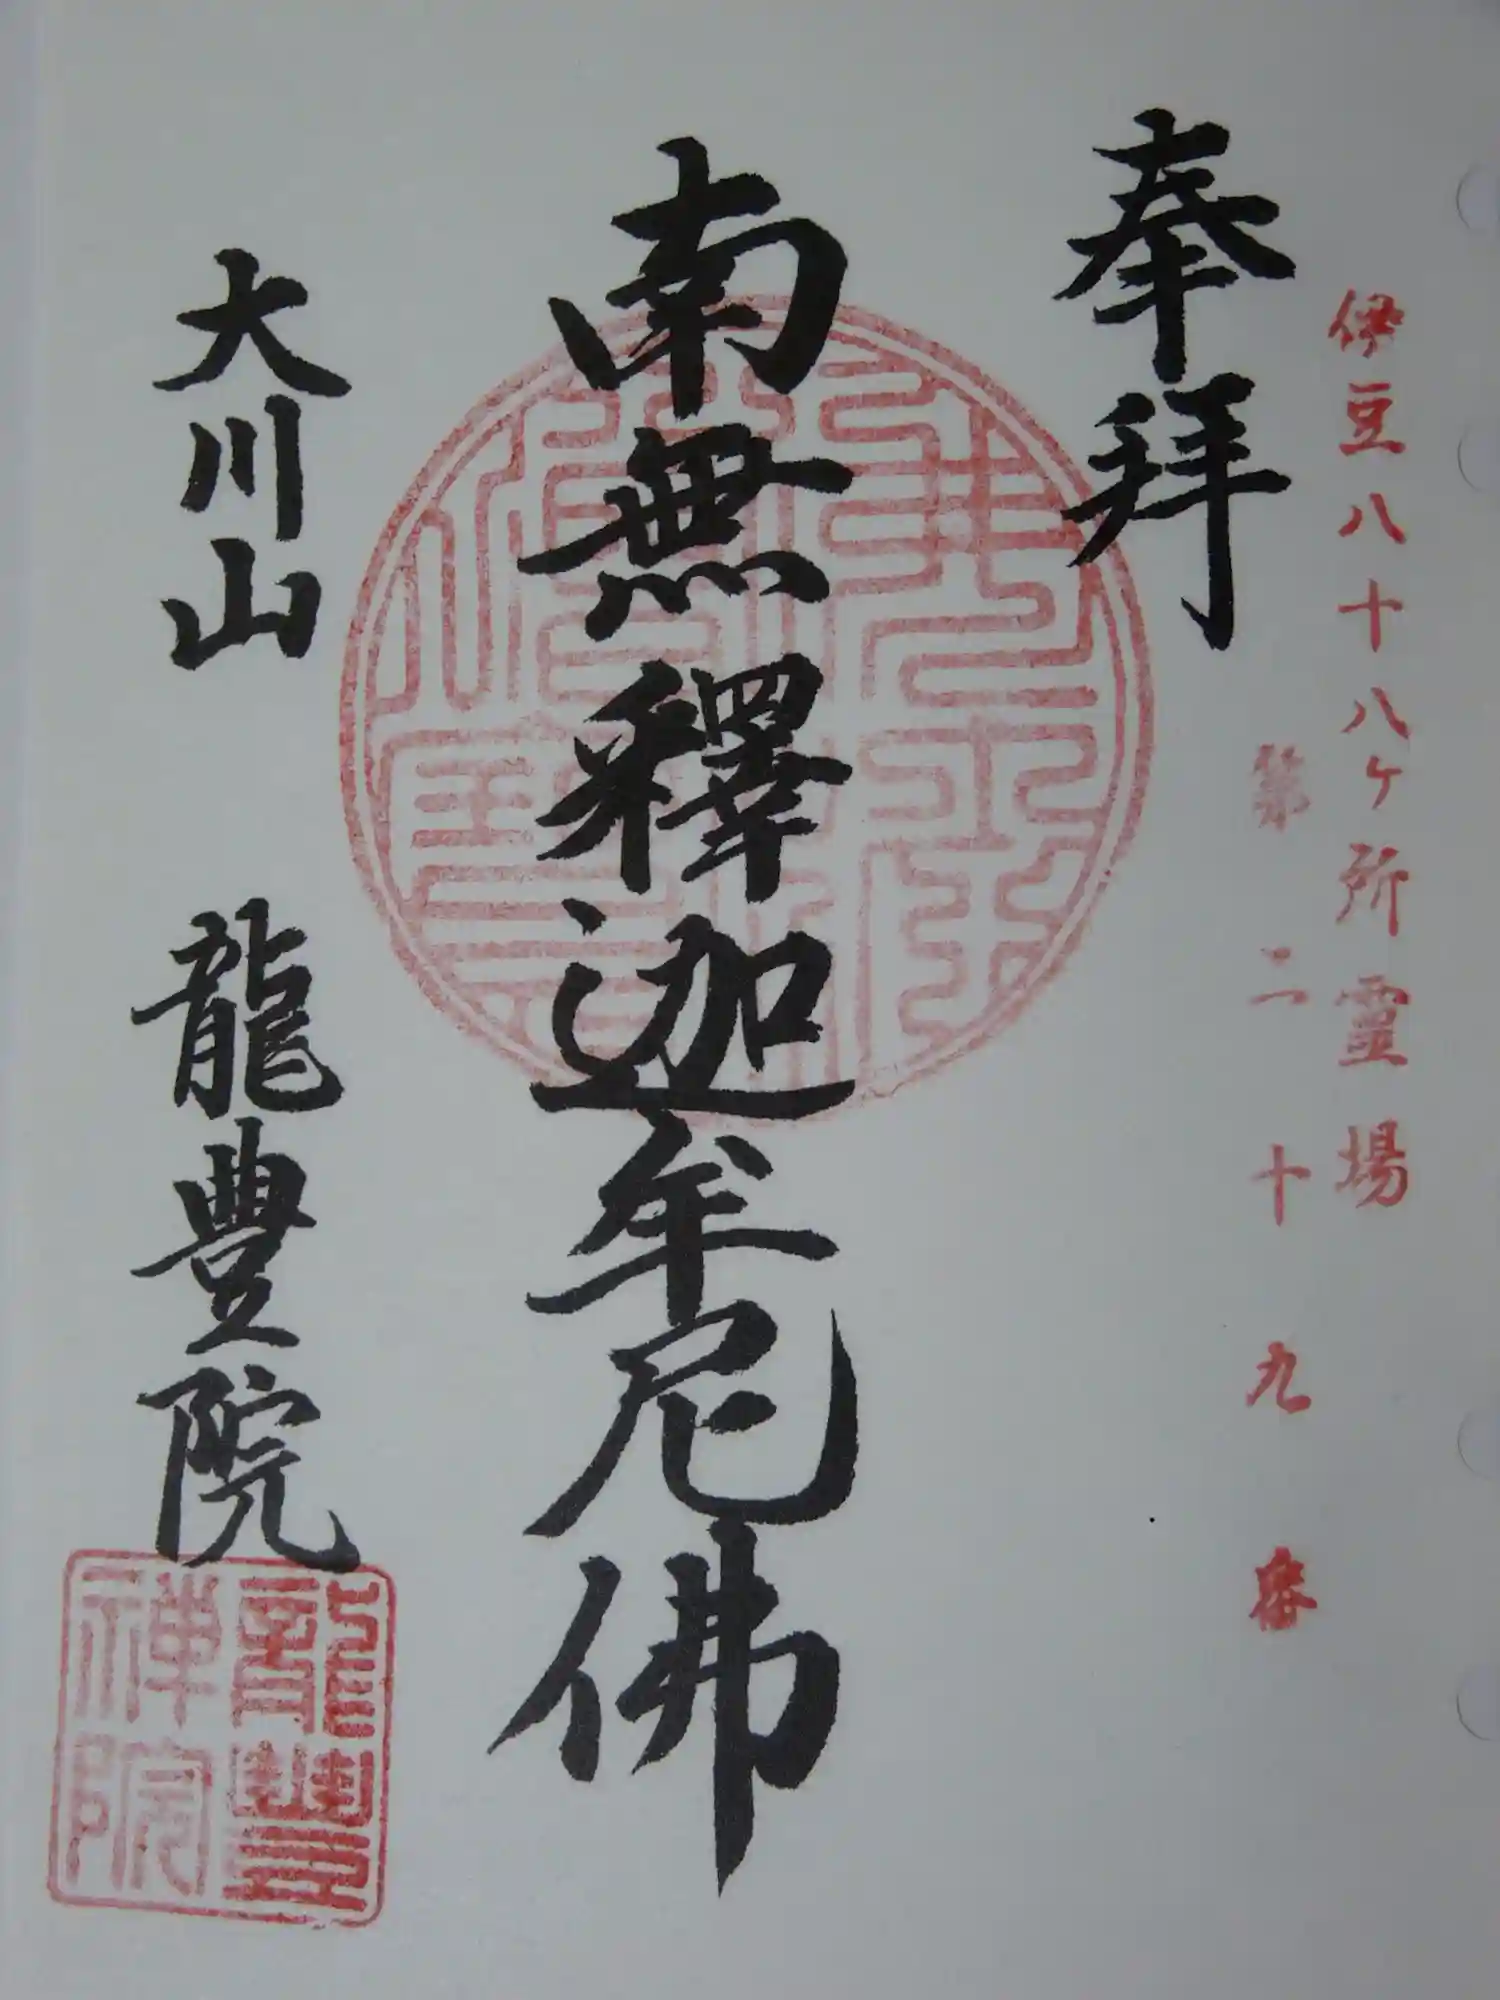 伊豆八十八ヶ所霊場
第二十九番
奉拜
南無釋迦牟尼佛
大川山 龍豊院
龍豐禅院